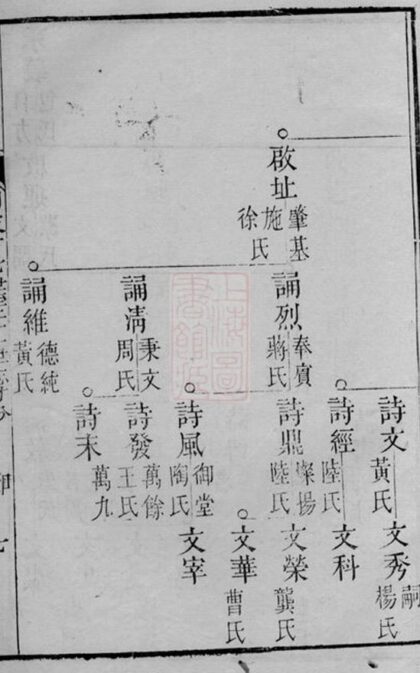 啟址
肇基
施
徐氏
誦烈
奉賓
蔣氏
誦清
秉文
周氏
誦維
德純
黃氏
詩文
黃氏
詩經
陸氏
詩鼎
燦揚
陸氏
詩風
御堂
陶氏
詩發
萬餘
王氏
詩末
萬九
文秀
嗣
楊氏
文科
文榮
龔氏
文華
曹氏
文宰
上海圖
書館藏